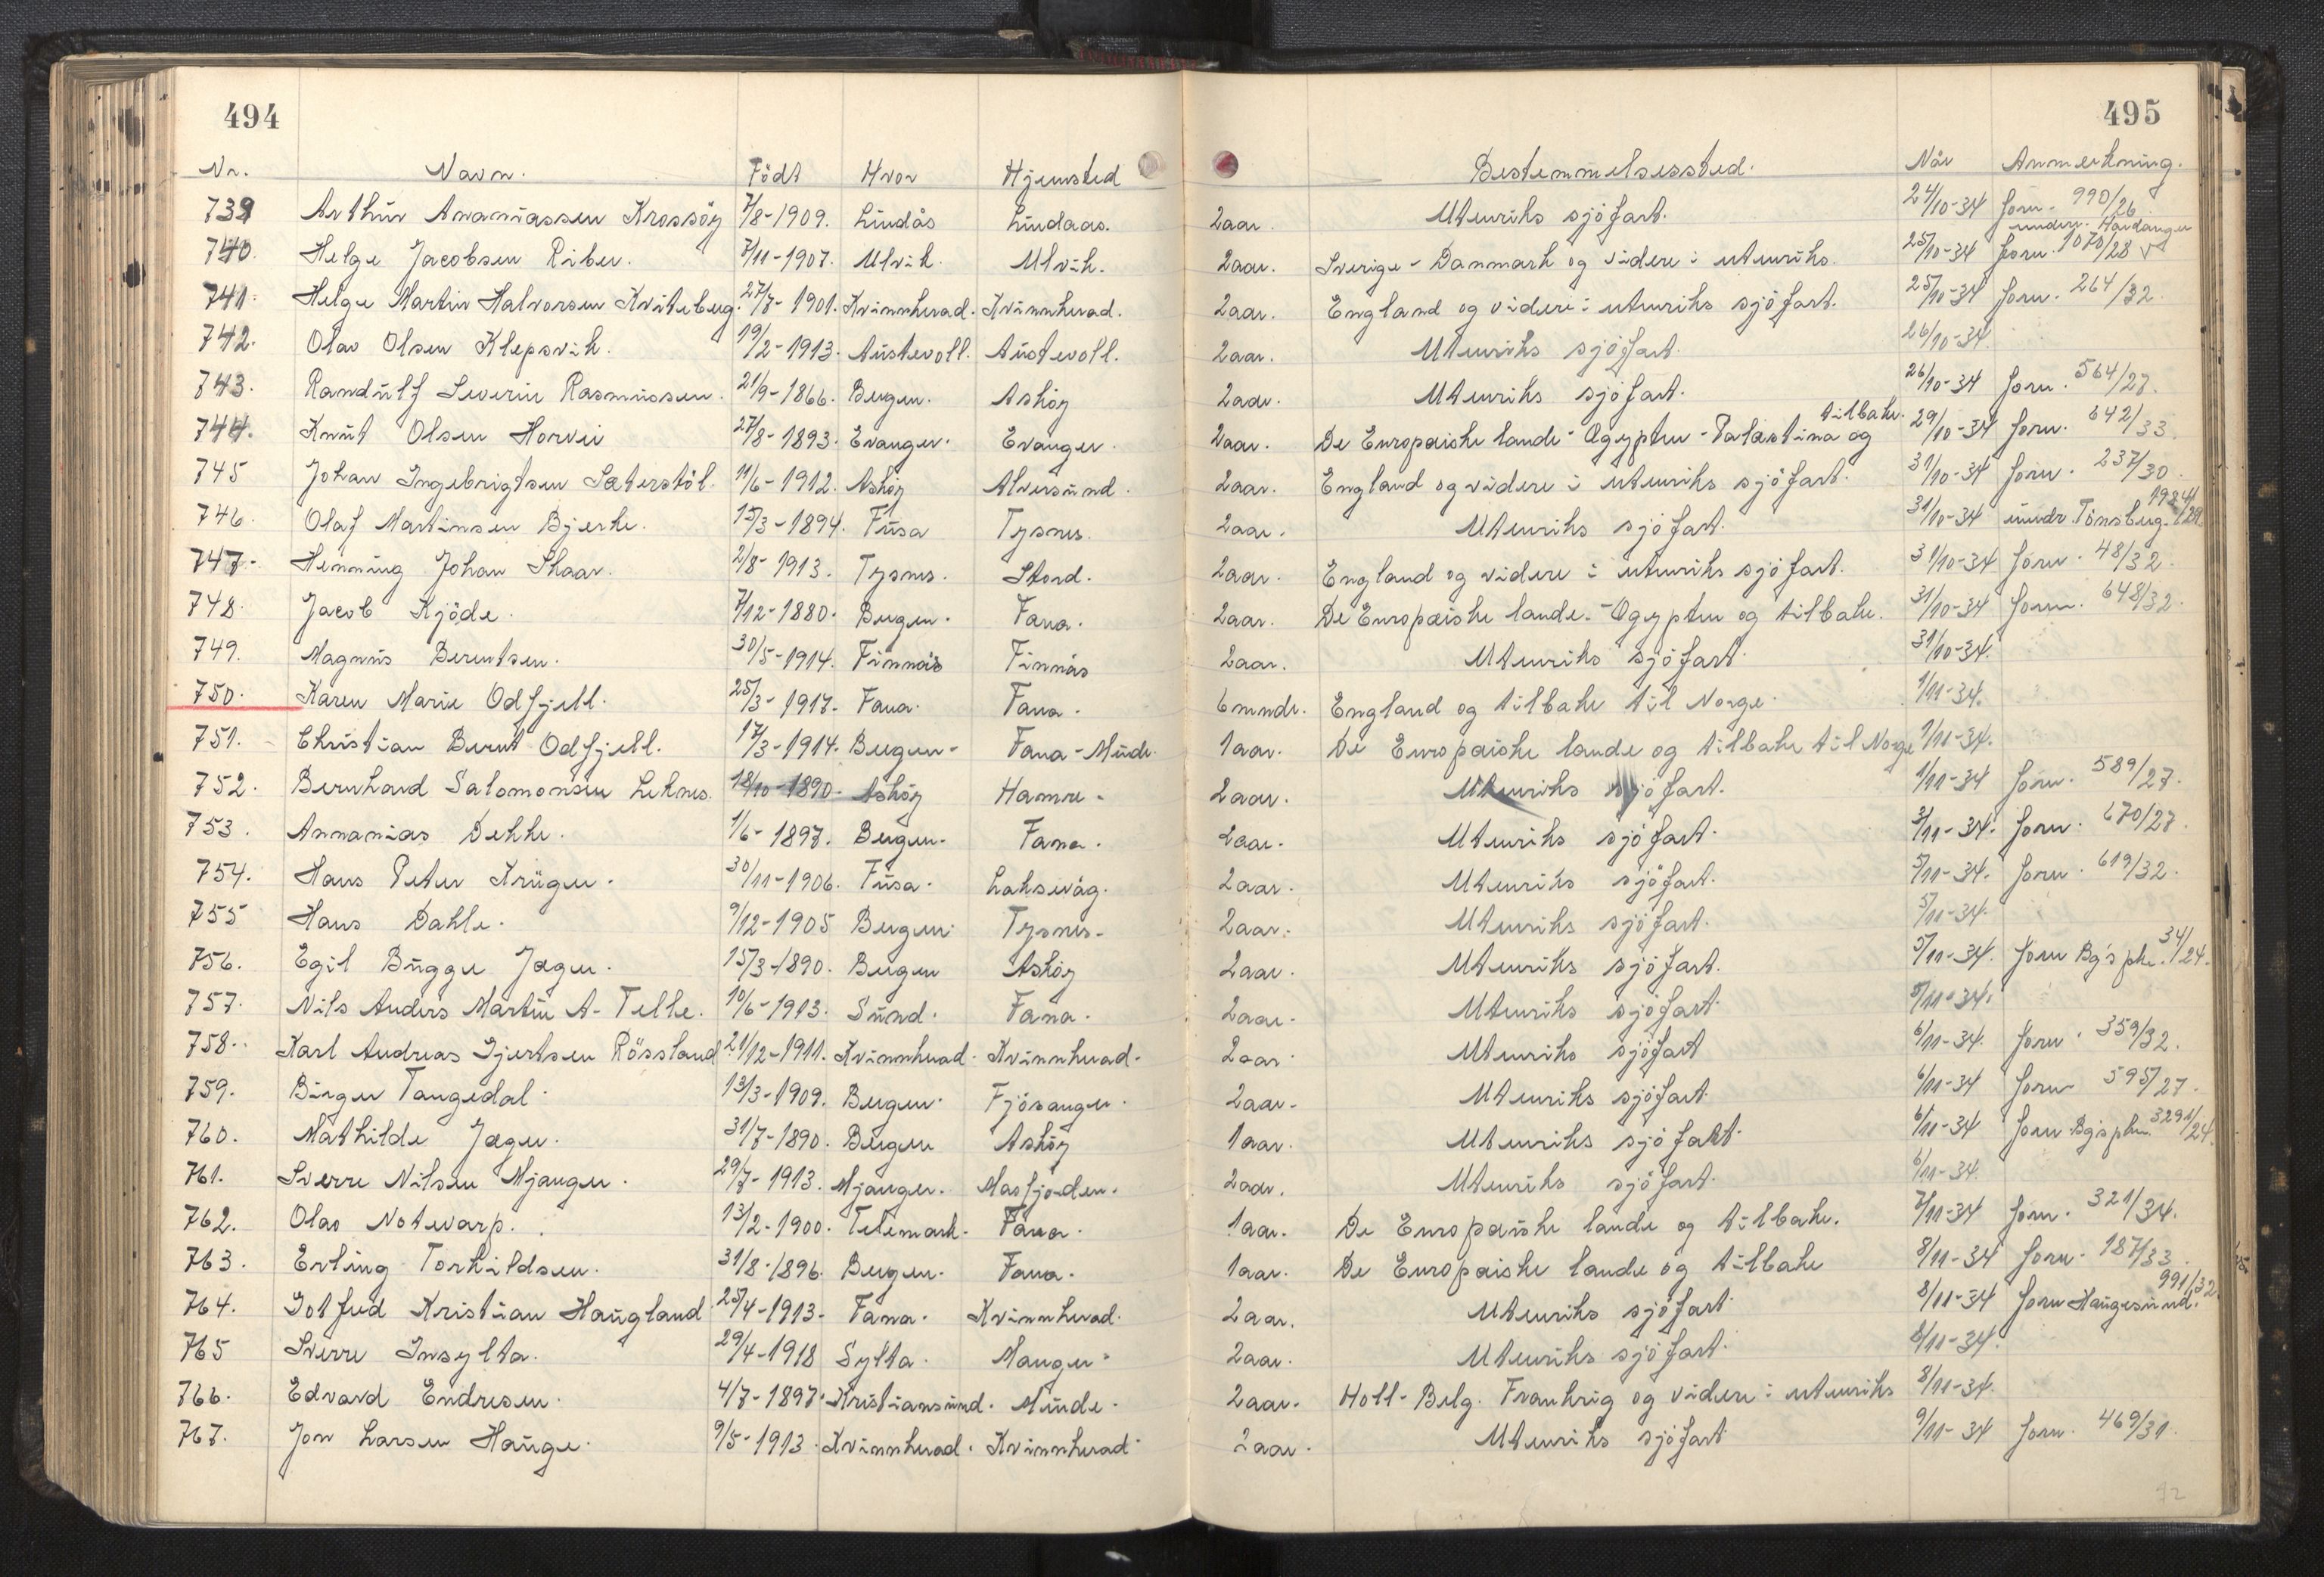 494
495
Nr. Navn. Födt Hvor Hjemsted Bestemmelsessted. Når Anmerkning.
739 Arthur Ananiassen Krossöy 7/8-1909. Lindås Lindaas. 2aar. Utenriks sjöfart. 24/10-34 forn. 990/26
740. Helge Jacobsen Riber. 7/11-1907. Ulvik. Ulvik. 2aar. Sverige - Danmark og videre i utenriks. 25/10-34 forn. undr. Hardanger 1070/28
741. Helge Martin Halvorsen Kviteberg. 27/7-1901. Kvinnherad. Kvinnherad. 2aar. England og videre i utenriks sjöfart. 25/10-34 forn. 264/32.
742. Olav Olsen Klepsvik. 19/2-1913. Austevoll. Austevoll. 2aar. Utenriks sjöfart. 26/10-34.
743. Randulf Severin Rasmussen. 21/9-1866. Bergen. Asköy 2aar. Utenriks sjöfart. 26/10-34 forn. 564/27.
744. Knut Olsen Horvei 27/8-1893. Evanger. Evanger. 2aar. De Europæiske lande - Ægypten - Palæstina og tilbake. 29/10-34 forn. 642/33
745 Johan Ingebrigtsen Sæterstöl. 11/6-1912. Asköy Alversund. 2aar. England og videre i utenriks sjöfart. 31/10-34 forn. 237/30.
746. Olaf Martinsen Bjerke. 15/3-1894. Fusa Tysnes. 2aar. Utenriks sjöfart. 31/10-34 undr. Tönsberg.
747. Henning Johan Skaar. 2/8-1913. Tysnes. Stord. 2aar. England og videre i utenriks sjöfart. 31/10-34 forn. 48/32.
748. Jacob Kjöde. 7/12-1880. Bergen. Fana. 2aar. De Europæiske lande. - Ægypten og tilbake. 31/10-34 forn. 648/32.
749. Magnus Berentsen. 30/5-1914. Finnås Finnås 2aar. Utenriks sjöfart. 31/10-34.
750. Karen Marie Odfjell. 25/3-1917. Fana. Fana. 6mndr. England og tilbake til Norge. 1/11-34.
751. Christian Bernt Odfjell. 17/3-1914. Bergen - Fana - Minde. 1aar. De Europæiske lande og tilbake til Norge 1/11-34.
752. Bernhard Salomonsen Leknes. 18/10-1890. Asköy Hamre. 2aar. Utenriks sjöfart. 1/11-34 forn. 589/27.
753. Annanias Dekke. 1/6-1897. Bergen. Fana. 2aar. Utenriks sjöfart. 3/11-34. forn. 670/27.
754. Hans Peter Krüger. 30/11-1906. Fusa. Laksevåg. 2aar. Utenriks sjöfart. 5/11-34. forn. 619/32.
755 Hans Dahle. 9/12-1905 Bergen. Tysnes. 2aar. Utenriks sjöfart. 5/11-34.
756. Egil Bugge Jæger. 15/3-1890. Bergen Asköy 2aar. Utenriks sjöfart. 5/11-34. forn Bg's pk. 34/24.
757. Nils Anders Martin A- Telle. 10/6-1913. Sund. Fana. 2aar. Utenriks sjöfart. 5/11-34.
758. Karl Andreas Gjertsen Rössland 21/12-1911. Kvinnherad. Kvinnherad. 2aar. Utenriks sjöfart 6/11-34. forn. 359/32.
759. Birger Tangedal. 13/3-1909. Bergen. Fjösanger. 2aar. Utenriks sjöfart. 6/11-34 forn 595/27.
760. Mathilde Jæger. 31/7-1890. Bergen Asköy 1aar. Utenriks sjöfart. 6/11-34 forn Bg's pk. 3291/24
761. Sverre Nilsen Mjanger. 29/7-1913. Mjanger. Masfjorden. 2aar. Utenriks sjöfart. 6/11-34.
762. Olav Notevarp. 13/2-1900. Telemark. Fana. 1aar. De Europæiske lande og tilbake. 7/11-34 forn. 321/34.
763. Erling Torkildsen. 31/8-1896. Bergen. Fana. 1aar. De Europæiske lande og tilbake 8/11-34 forn. 187/33.
764. Gotfred Kristian Haugland 25/4-1913. Fana. Kvinnherad. 2aar. Utenriks sjöfart 8/11-34 forn Haugesund. 991/32
765 Sverre Insylta. 29/4-1918 Sylta. Manger. 2aar. Utenriks sjöfart. 8/11-34.
766. Edvard Endresen. 4/7-1897. Kristiansund. Minde. 2aar. Holl- Belg. Frankrig og videre i utenriks 8/11-34.
767. Jon Larsen Hauge. 9/5-1913. Kvinnherad. Kvinnherad 2aar. Utenriks sjöfart 9/11-34 forn. 469/31.